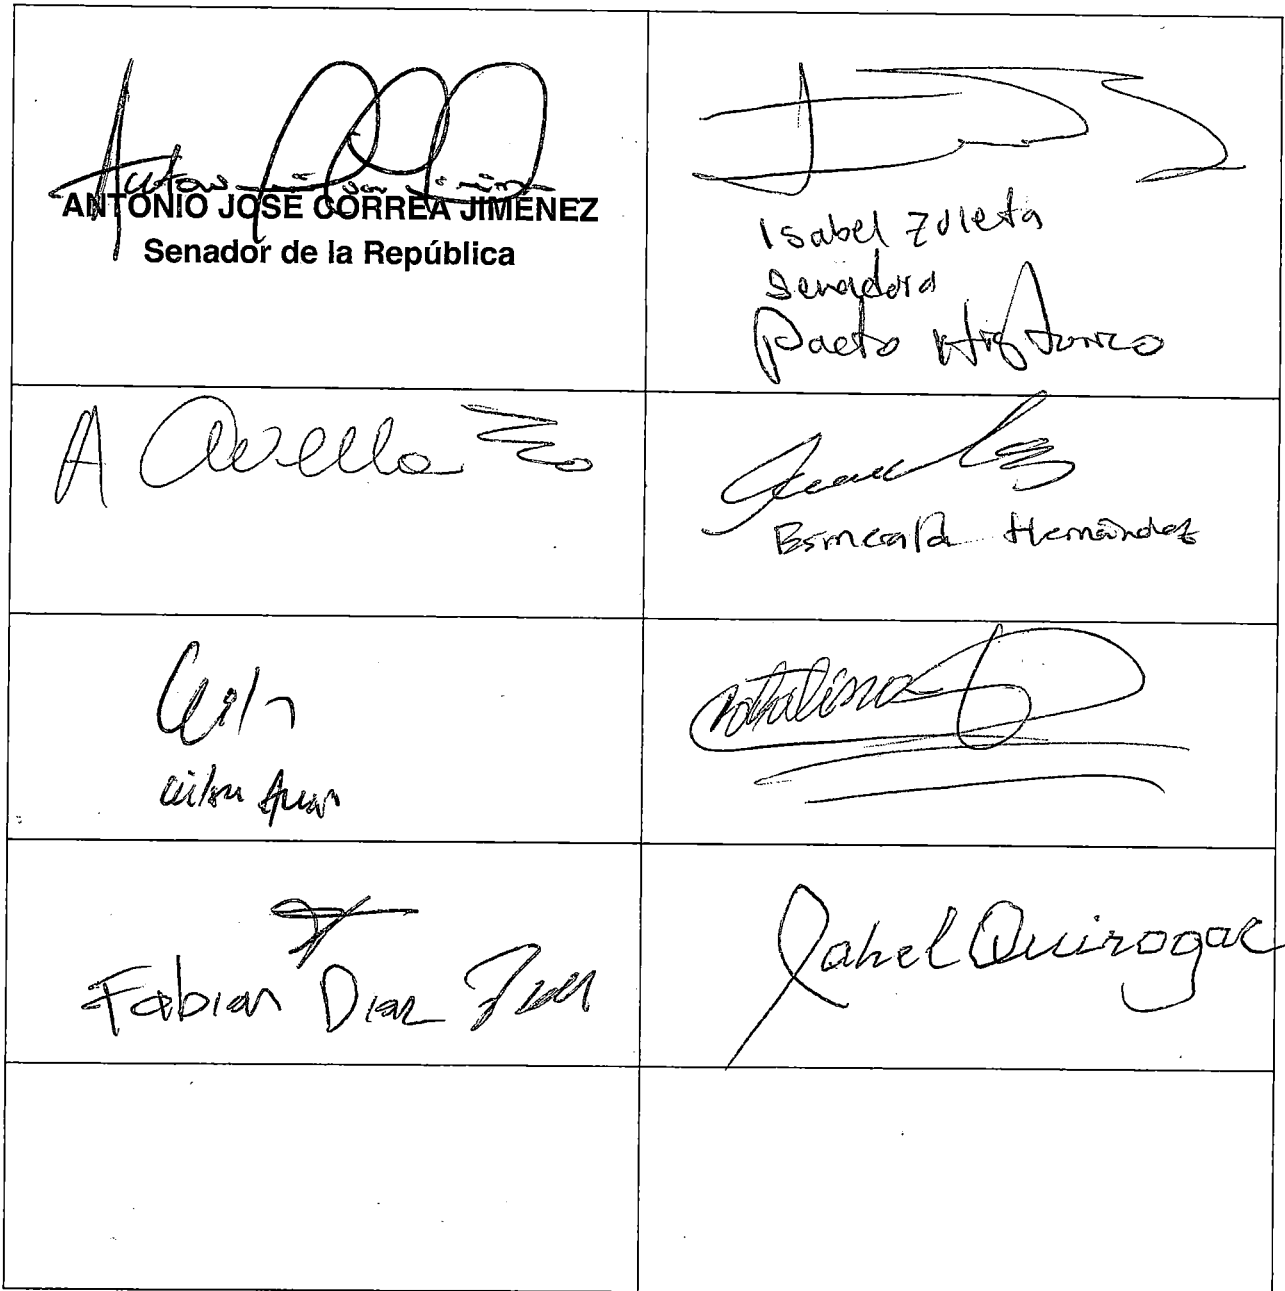 ANTONIO JOSÉ CORREA JIMÉNEZ
Senador de la República
Isabel Zuleta
Senadora
Pacto Histórico
A Avella
Esmeralda Hernández
Wilson Arias
Catalina
Fabian Diaz
Jahel Quiroga C